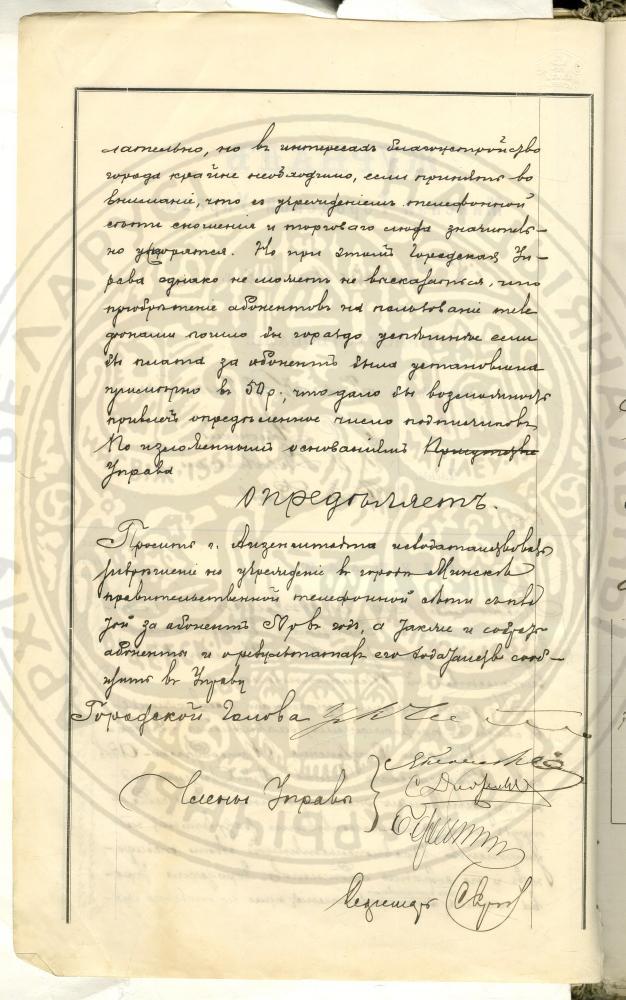 лательно, но въ интересахъ благоустройства
города крайне необходимо, если принять во
внимание, что съ учрежденiемъ телефонной
сѣти сношенiя и торговаго люда значитель-
но ускорятся. Но при этомъ Городская Уп-
рава однако не можетъ не высказаться, что
прiобрѣтенiе абонентовъ на пользованiе теле
фонами пошло бы гораздо успѣшнѣе если
бы плата за абонентъ была установлена
примѣрно въ 50 р., что дало бы возможность
привлечь опредѣленное число подписчиковъ
По изложеннымъ основанiямъ
Управа
Опредѣляетъ.
Просить г. Айзенштадта исходатайствовать
разрѣшенiе на учрежденiе въ городѣ Минскѣ
правительственной телефонной сѣти съ пла
той за абонентъ 50 р въ годъ, а также и собрать
абоненты и о результатахъ его ходатайства сооб-
щить въ Управу
Городской Голова
Члены Управы
Секретарь